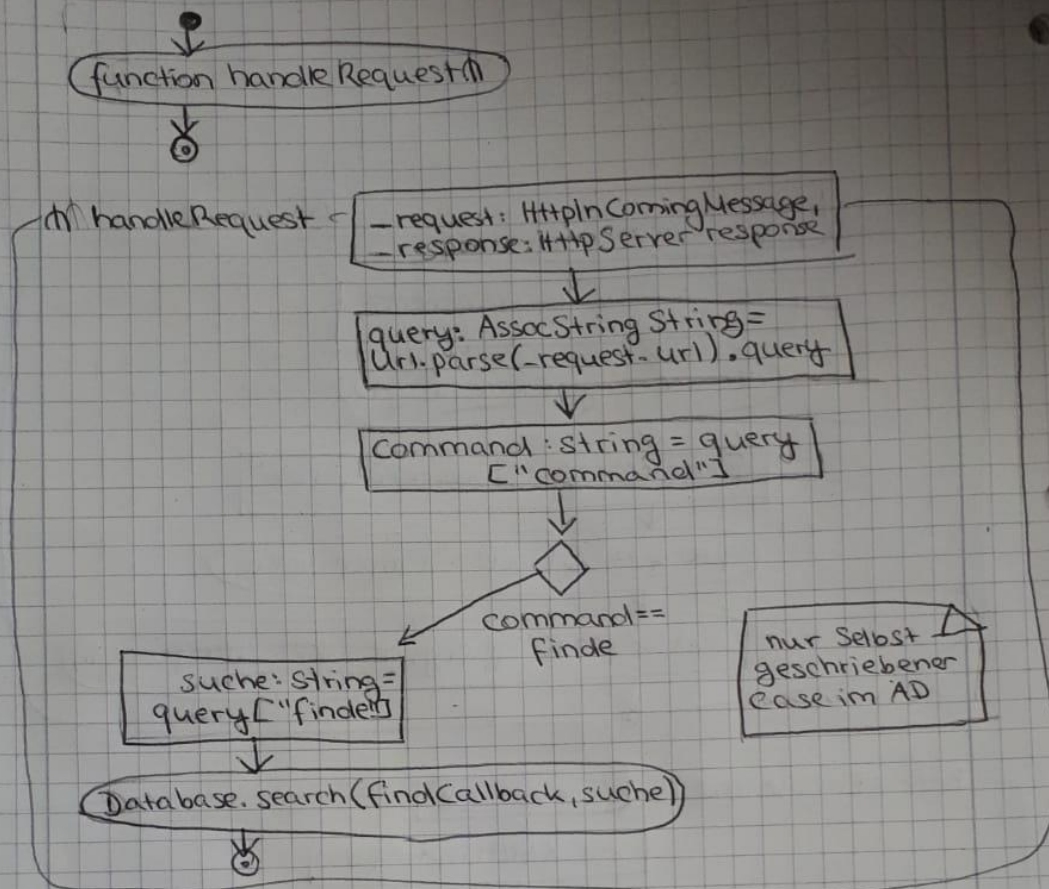 function handleRequest
handleRequest
_request: HttpInComingMessage,
_response: HttpServer response
query: AssocString String=
Url.parse(_request.url).query
command: string = query
["command"]
command==
finde
nur Selbst
geschriebener
Case im AD
suche: string=
query["finde"]
Database.search(findCallback, suche)